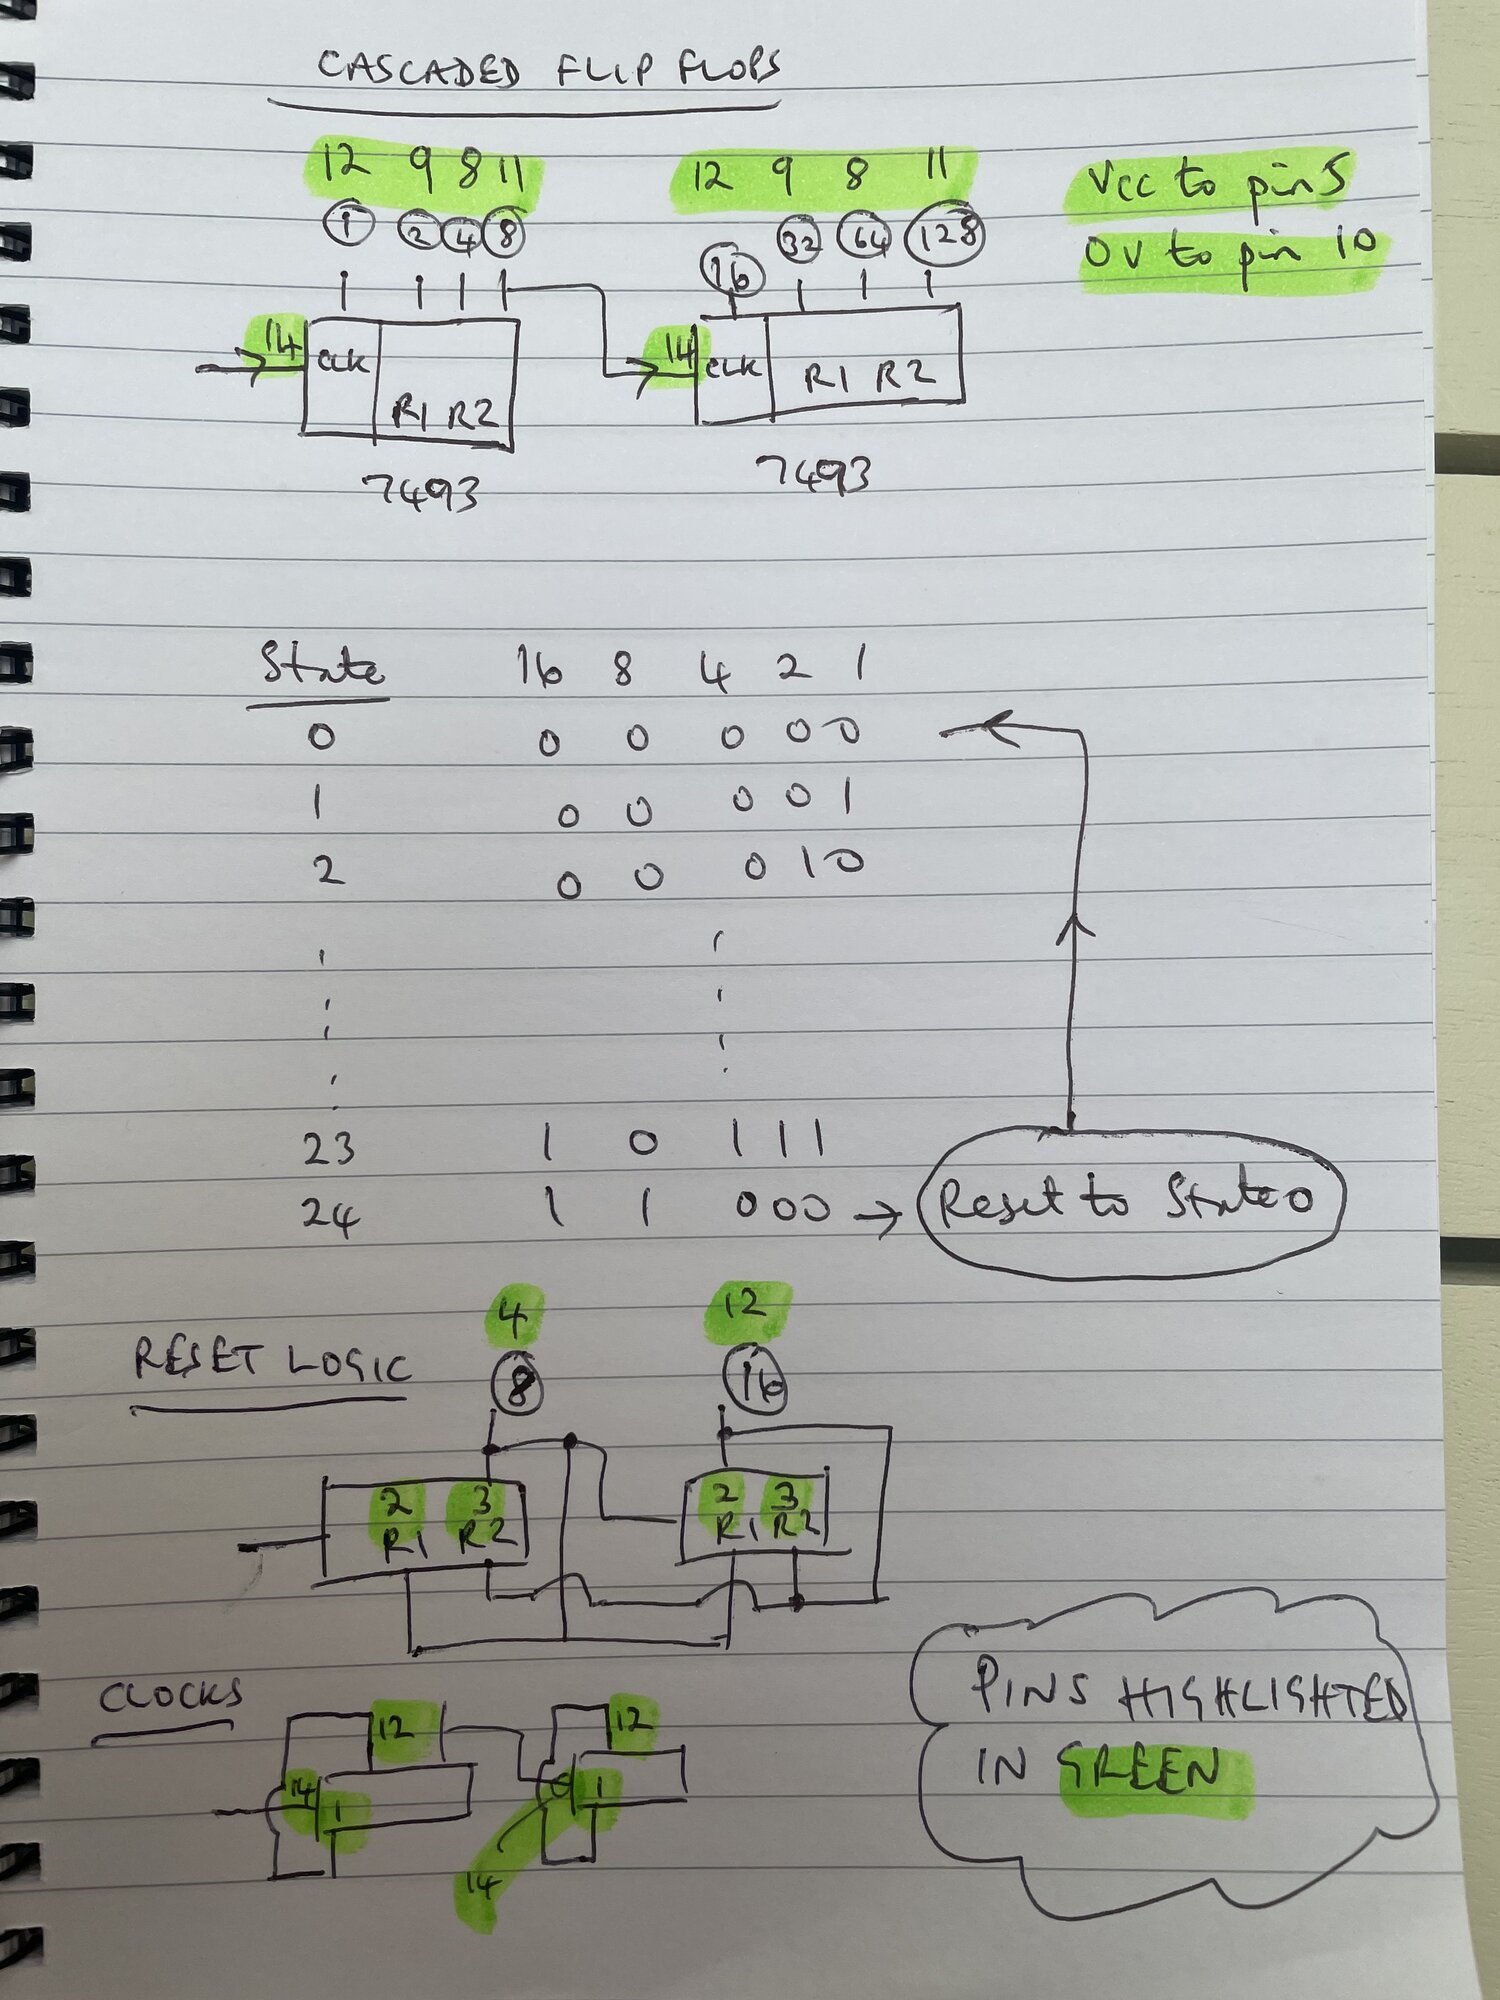 CASCADED FLIP FLOPS
12 9 8 11 12 9 8 11 Vcc to pin 5
1 2 4 8 16 32 64 128 0V to pin 10
14 CLK 14 CLK
R1 R2 R1 R2
7493 7493
State 16 8 4 2 1
0 0 0 0 0 0
1 0 0 0 0 1
2 0 0 0 1 0
23 1 0 1 1 1
24 1 1 0 0 0 → Reset to State 0
4 12
RESET LOGIC 8 16
2 3 2 3
R1 R2 R1 R2
CLOCKS
12 12
14 1 1
14
PINS HIGHLIGHTED
IN GREEN